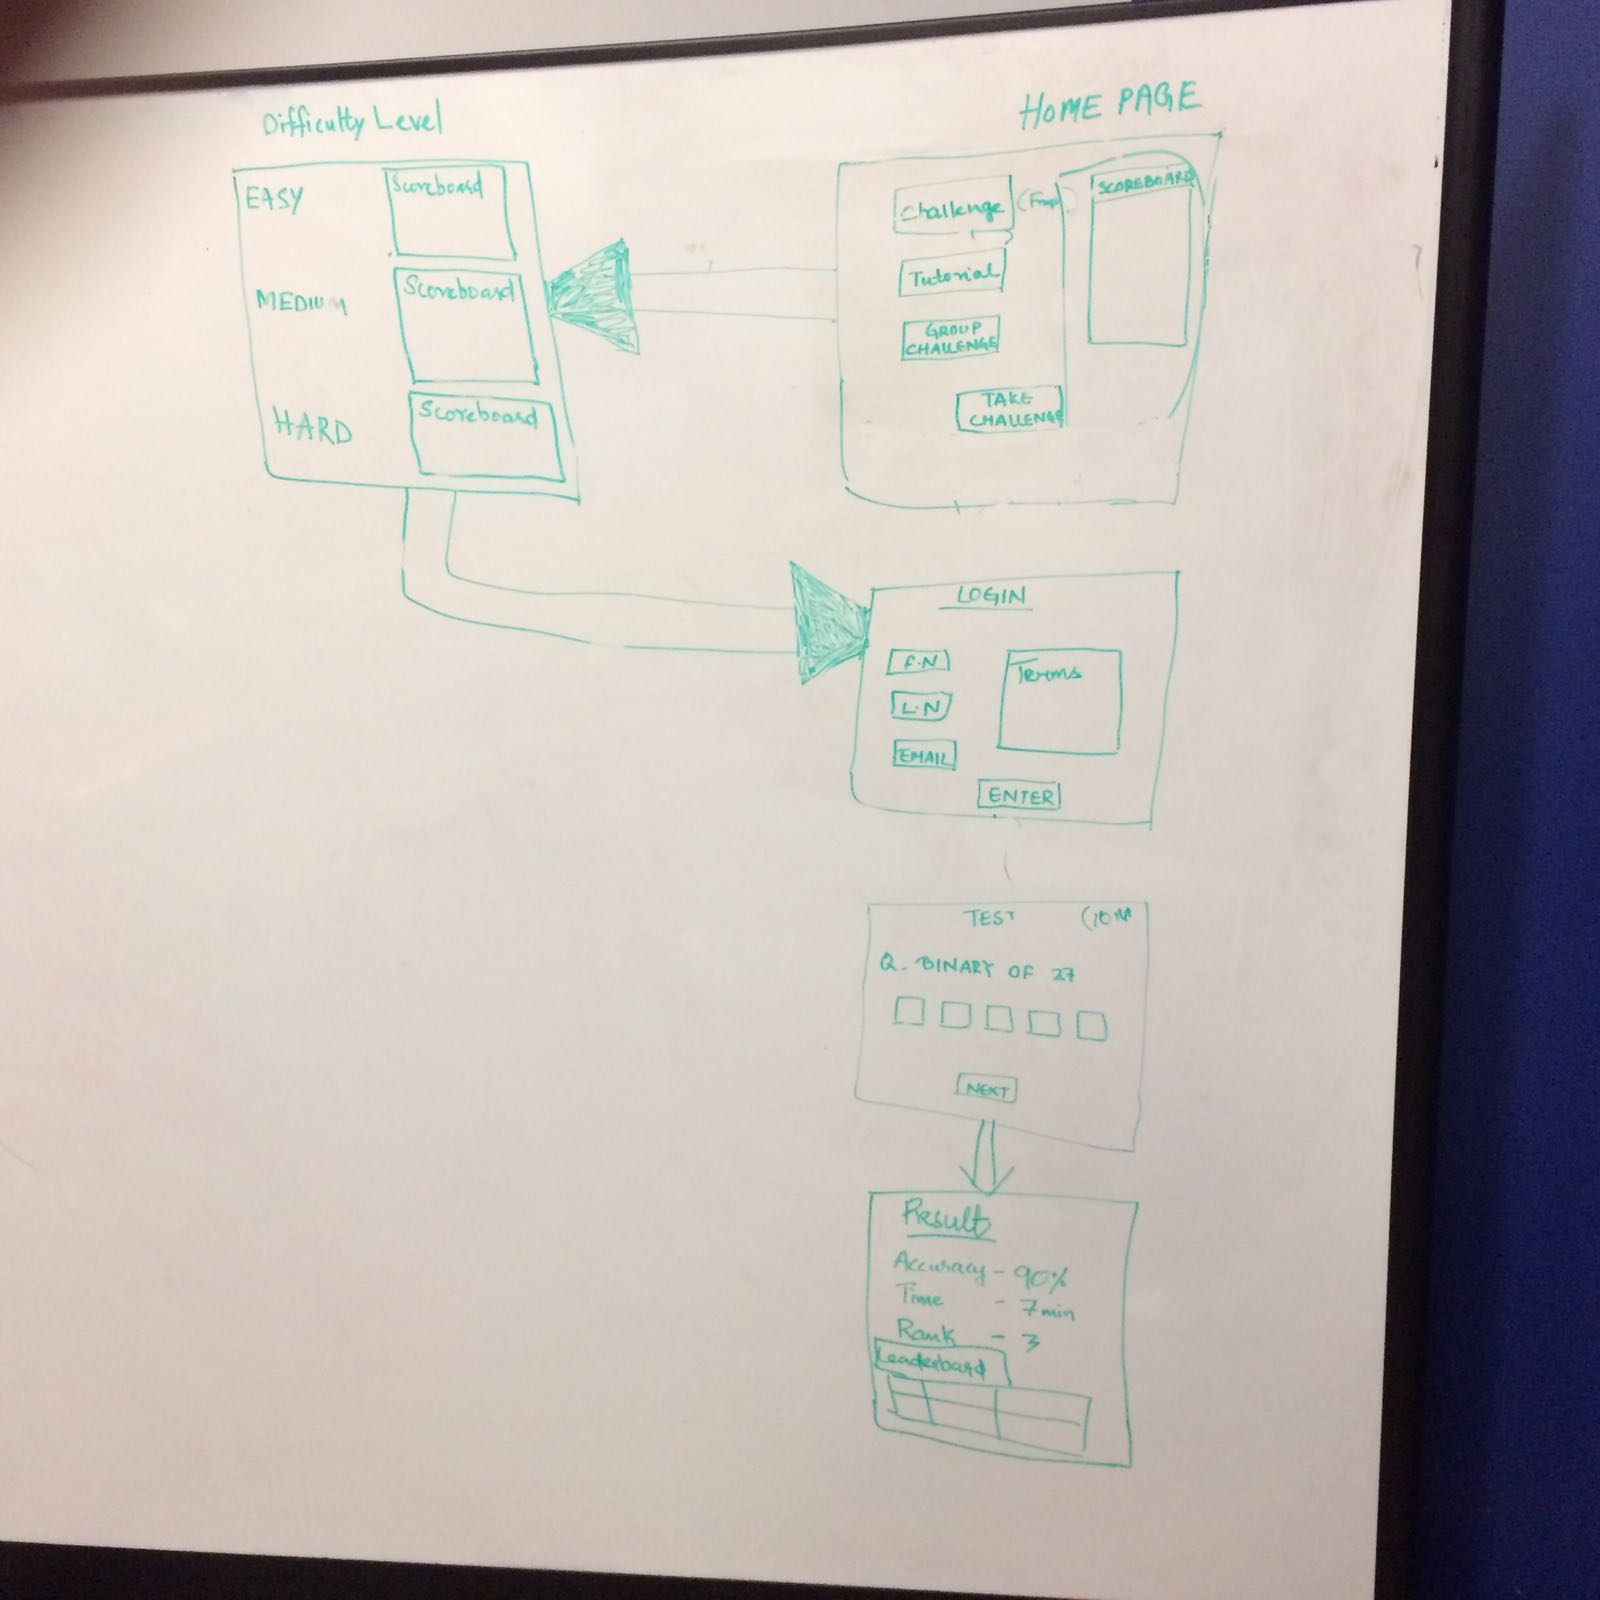 Difficulty Level
EASY
Scoreboard
MEDIUM
Scoreboard
HARD
Scoreboard
HOME PAGE
Challenge
Tutorial
GROUP
CHALLENGE
TAKE
CHALLENGE
SCOREBOARD
LOGIN
F.N
L.N
EMAIL
Terms
ENTER
TEST (10 M
Q. BINARY OF 27
NEXT
Result
Accuracy - 90%
Time - 7 min
Rank - 3
Leaderboard